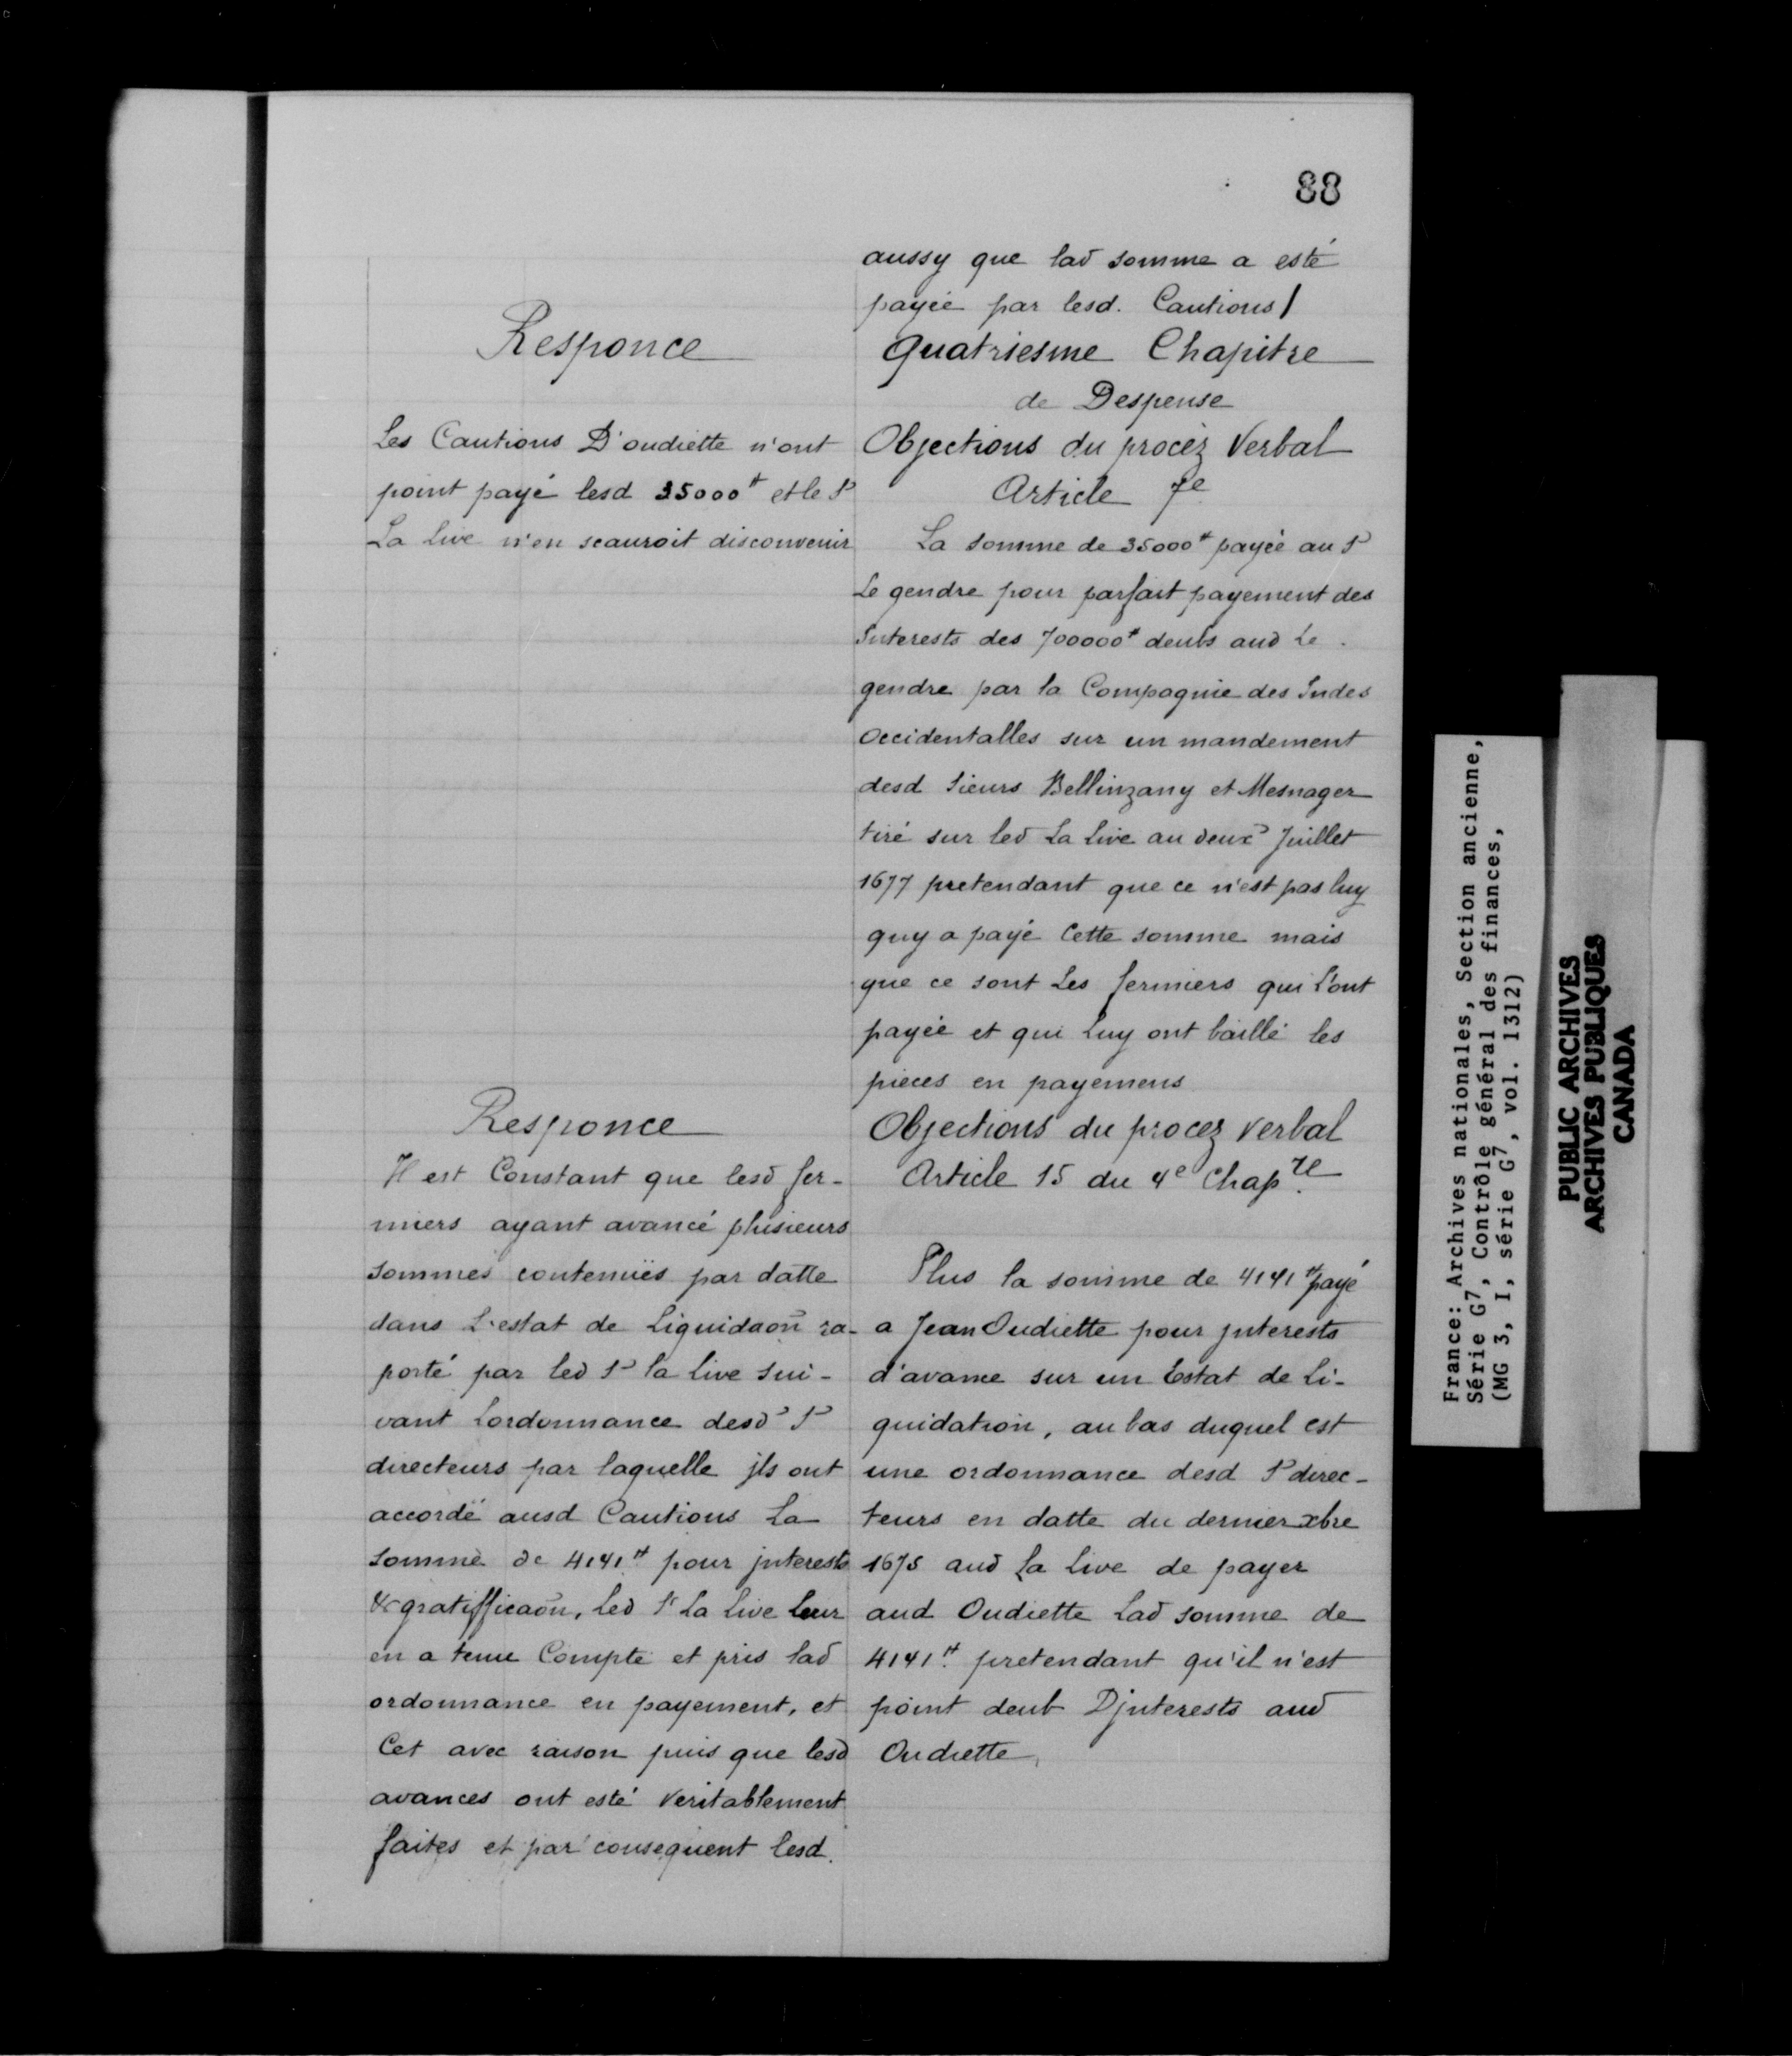 88
aussy que lad somme a esté
payée par lesd. Cautions/
Quatriesme Chapitre
de Despense
Objections du procèz Verbal
Article 7e
La somme de 35000# payée au Sr
Le gendre pour parfait payement des
Interests des 700000# deubs aud Le
gendre par la Compagnie des Indes
Occidentalles sur un mandement
desd Sieurs Bellinzany et Mesnager
tiré sur led La Live au deuxe Juillet
1677 pretendant que ce n'est pas luy
quy a payé Cette somme mais
que ce sont Les fermiers qui l'ont
payée et qui Luy ont baillé les
pieces en payemens
Objections du procez verbal
Article 15 du 4e Chapre
Plus la somme de 4141# payé
a Jean Oudiette pour jnterests
d'avance sur un Estat de Li-
quidation, au bas duquel est
une ordonnance desd Srs direc-
teurs en datte du dernier xbre
1675 aud La Live de payer
aud Oudiette Lad somme de
4141# pretendant qu'il n'est
point deub Djnterests aud
Oudiette
Responce
Les Cautions D'oudiette n'ont
point payé lesd 35000# et le Sr
La Live n'en scauroit disconvenir
Responce
Il est Constant que lesd fer-
miers ayant avancé plusieurs
sommes contenuës par datte
dans L'estat de Liquidaon ra-
porté par led Sr la Live sui-
vant Lordonnance desd Srs
directeurs par laquelle jls ont
accordé ausd Cautions La
somme de 4141# pour jnterests
& gratifficaon, led Sr La Live leur
en a tenu Compte et pris lad
ordonnance en payement, et
Cet avec raison puis que lesd
avances ont esté veritablement
faites et par consequent lesd.
France: Archives nationales, Section ancienne,
Série G7, Contrôle général des finances,
(MG 3, I, série G7, vol. 1312)
PUBLIC ARCHIVES
ARCHIVES PUBLIQUES
CANADA